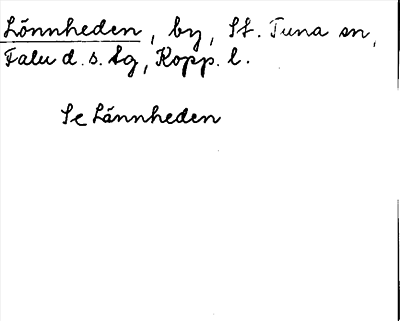 Lönnheden, by, St. Tuna sn,
Falu d. s. tg, Kopp. l.
Se Lännheden